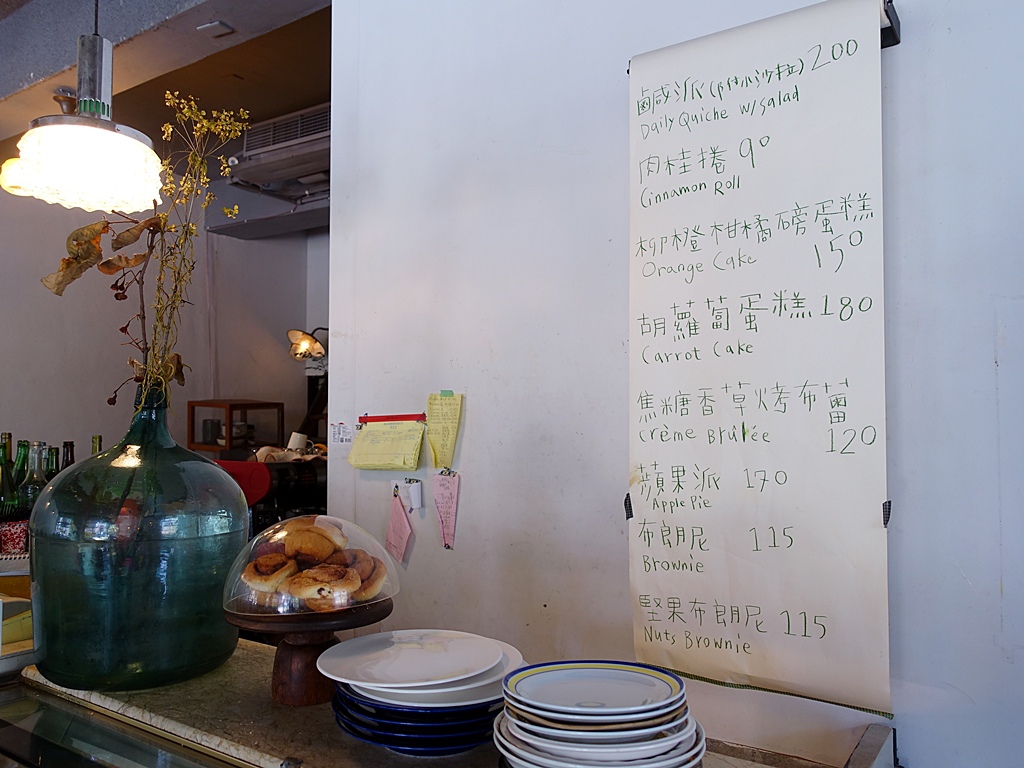 鹹派(附小沙拉) 200
Daily Quiche w/salad
肉桂捲 90
Cinnamon Roll
柳橙柑橘磅蛋糕
Orange Cake 150
胡蘿蔔蛋糕 180
Carrot Cake
焦糖香草烤布蕾
Crème Brûlée 120
蘋果派 170
Apple Pie
布朗尼 115
Brownie
堅果布朗尼 115
Nuts Brownie